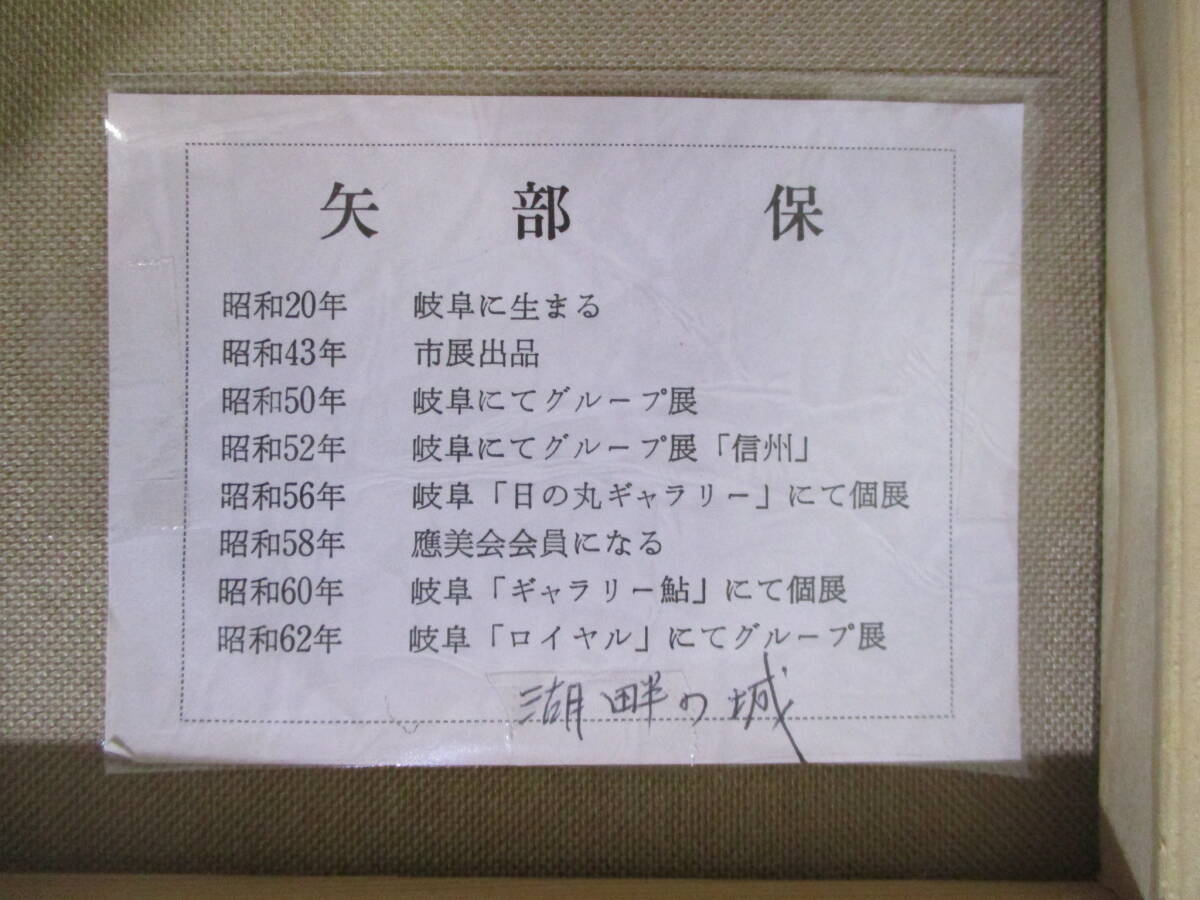 矢部 保
昭和20年 岐阜に生まる
昭和43年 市展出品
昭和50年 岐阜にてグループ展
昭和52年 岐阜にてグループ展「信州」
昭和56年 岐阜「日の丸ギャラリー」にて個展
昭和58年 應美会会員になる
昭和60年 岐阜「ギャラリー鮎」にて個展
昭和62年 岐阜「ロイヤル」にてグループ展
湖畔の城